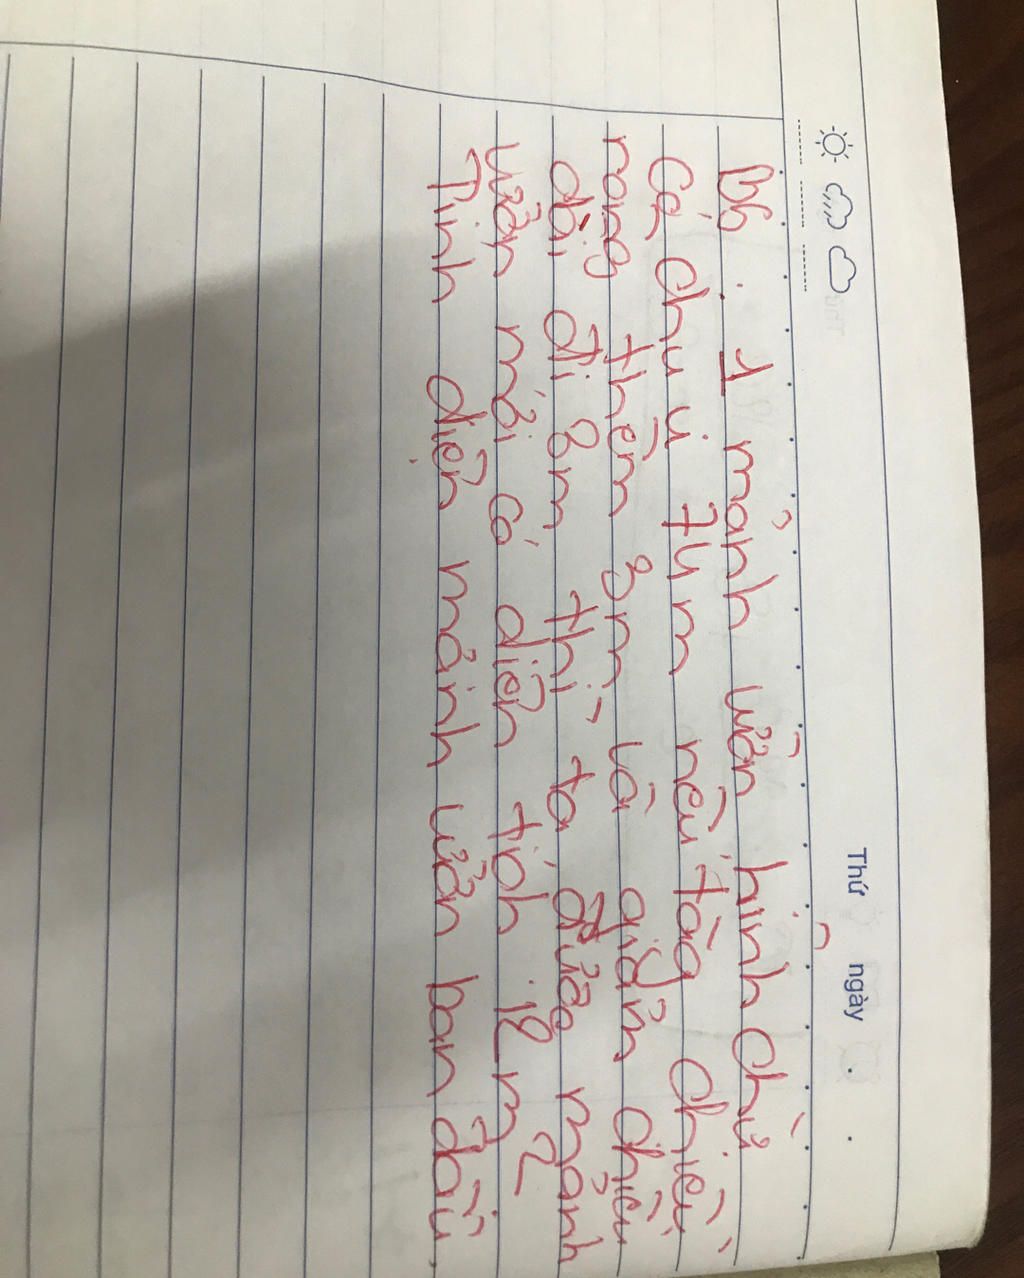 Thứ ngày
B6. 1 mảnh vườn hình chữ
có chu vi 74m nếu tăng chiều
rộng thêm 3m và giảm chiều
dài đi 8m thì ta được mảnh
vườn mới có diện tích 12m2
Tính diện mảnh vườn ban đầu.